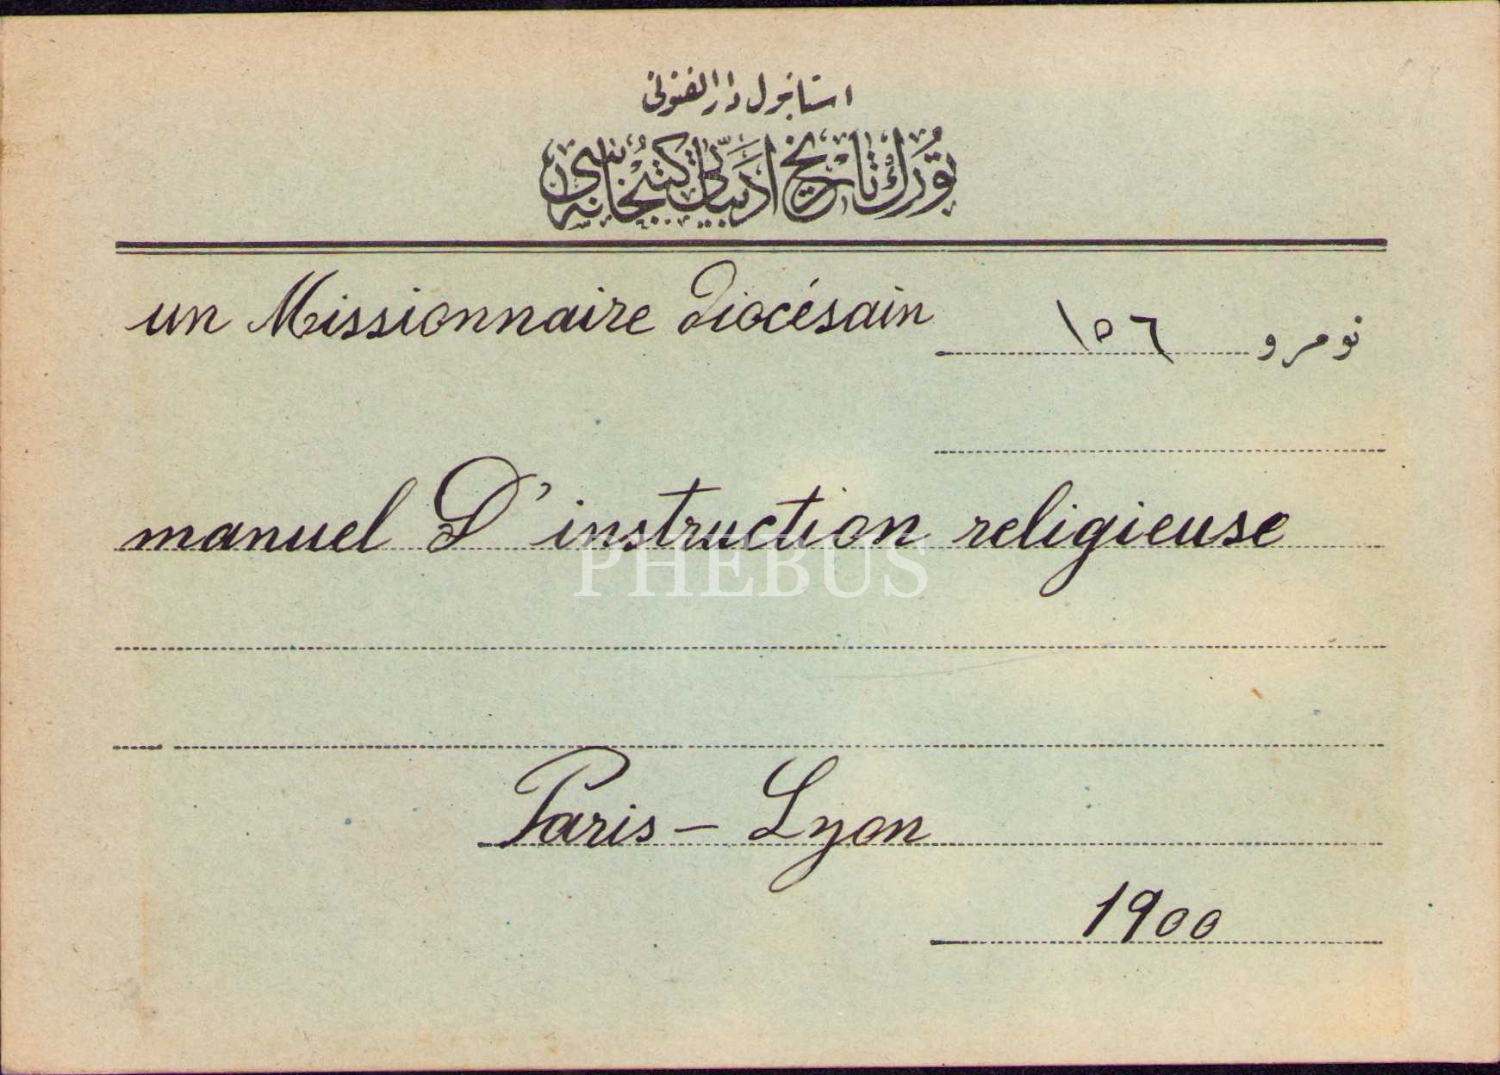 استانبول دارالفنونی
تورك تاریخ ادبیاتی كتبخانه‌سی
un Missionnaire Diocésain
نومرو ١٥٦
manuel D'instruction religieuse
PHEBUS
Paris – Lyon
1900